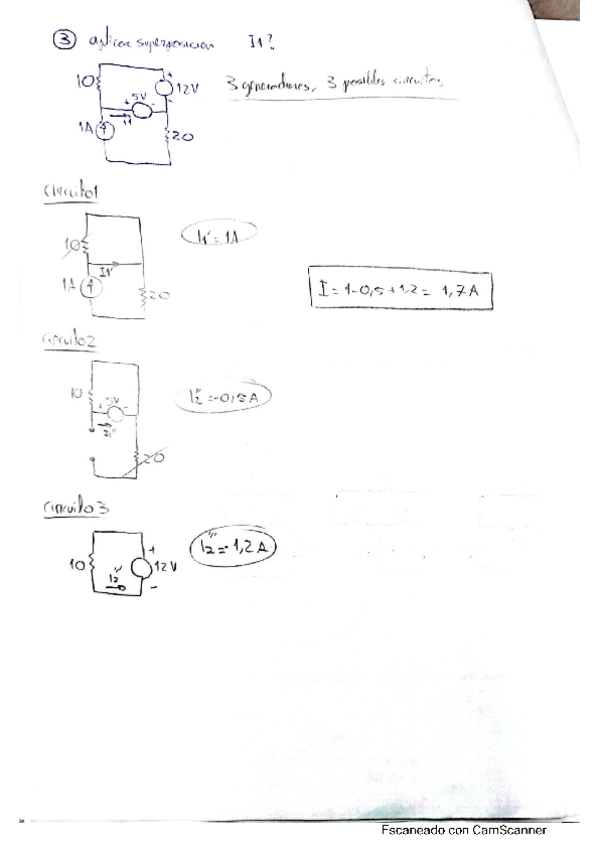 ③ aplicar superposicion I1?
10
12V
+ 5V -
I1
1A
20
3 generadores, 3 posibles circuitos
Circuito1
10
I1'
1A
20
I1' = 1A
I = 1-0,5+1,2 = 1,7 A
Circuito2
10
+ 5V -
20
I2" = -0,5A
Circuito3
10
+
12V
I2"
-
I2"' = 1,2A
Escaneado con CamScanner